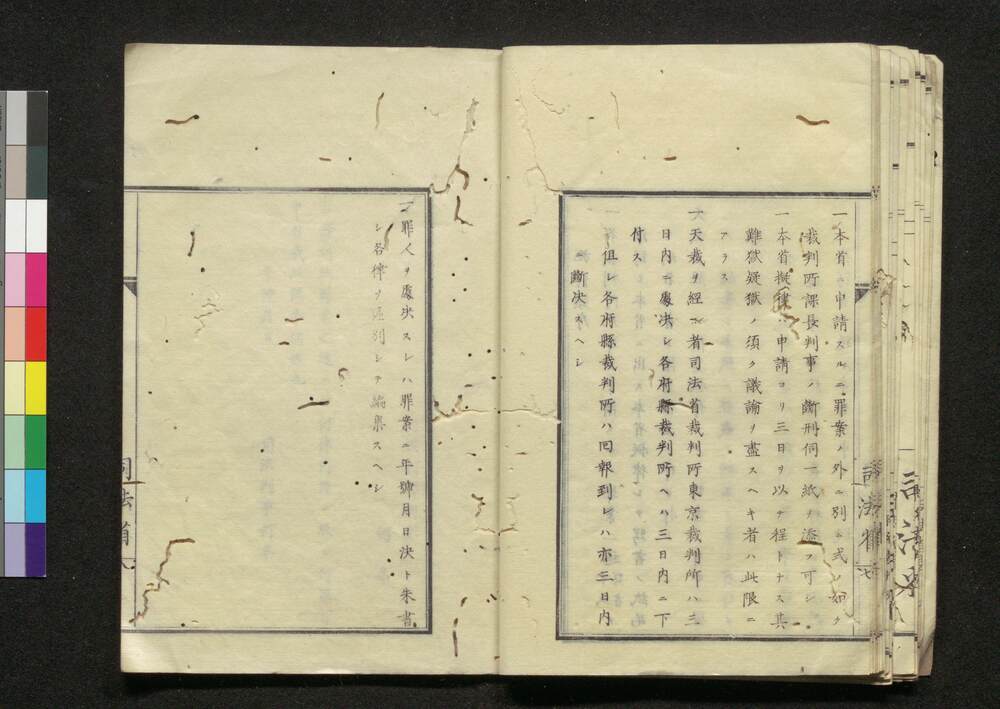 一本省ニ申請スルニ罪案ノ外ニ別ニ式ノ如ク
裁判所課長判事ノ断刑伺一紙ヲ添フ可シ
一本省擬律ハ申請ヨリ三日ヲ以テ程トナス其
難獄疑獄ノ須ク議論ヲ盡スヘキ者ハ此限ニ
アラス
一天裁ヲ経ル者司法省裁判所東京裁判所ハ三
日内ニ處决シ各府縣裁判所ヘハ三日内ニ下
付ス
但シ各府縣裁判所ハ回報到レハ亦三日内
ニ斷决スヘシ
一罪人ヲ處决スレハ罪案ニ年號月日决ト朱書
シ各律ヲ區別シテ編集スヘシ
司法省